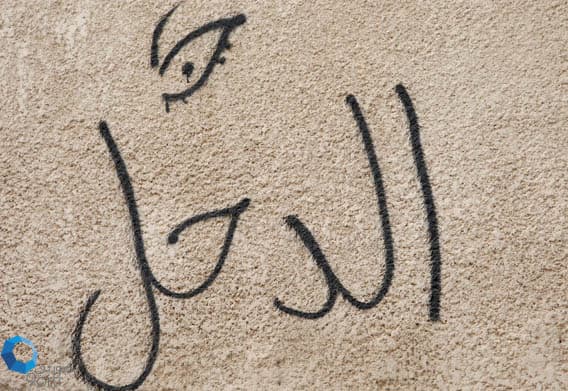 الدحل